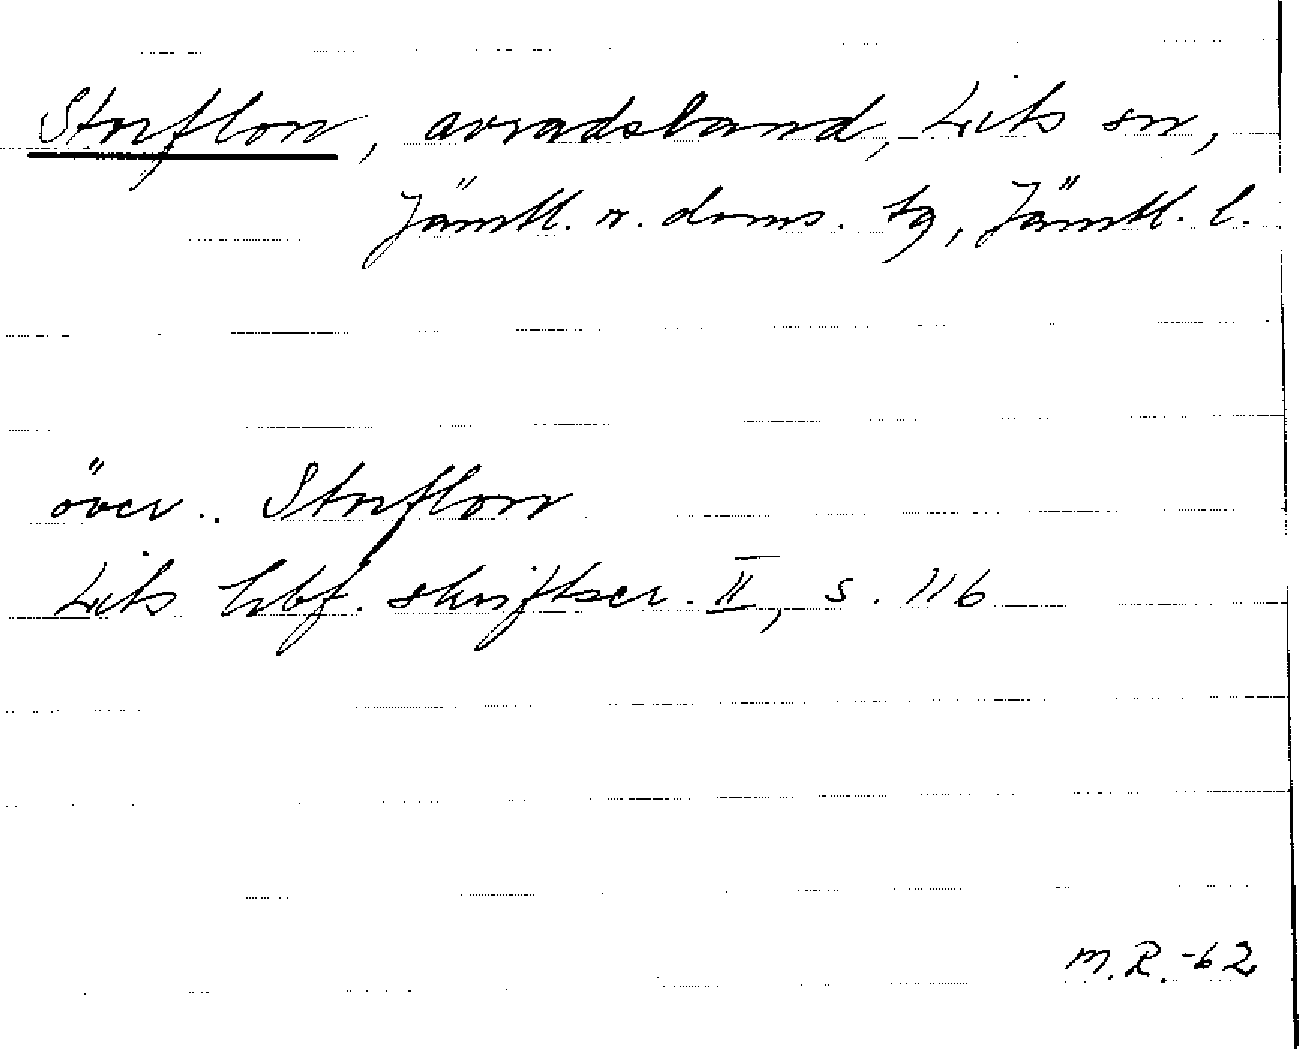 Storflon, avradsland, Lits sn,
Jämtl. n. doms. tg, Jämtl. l.
över. Storflon
Lits hbf. skriftser. II, s. 116
M.R.-62